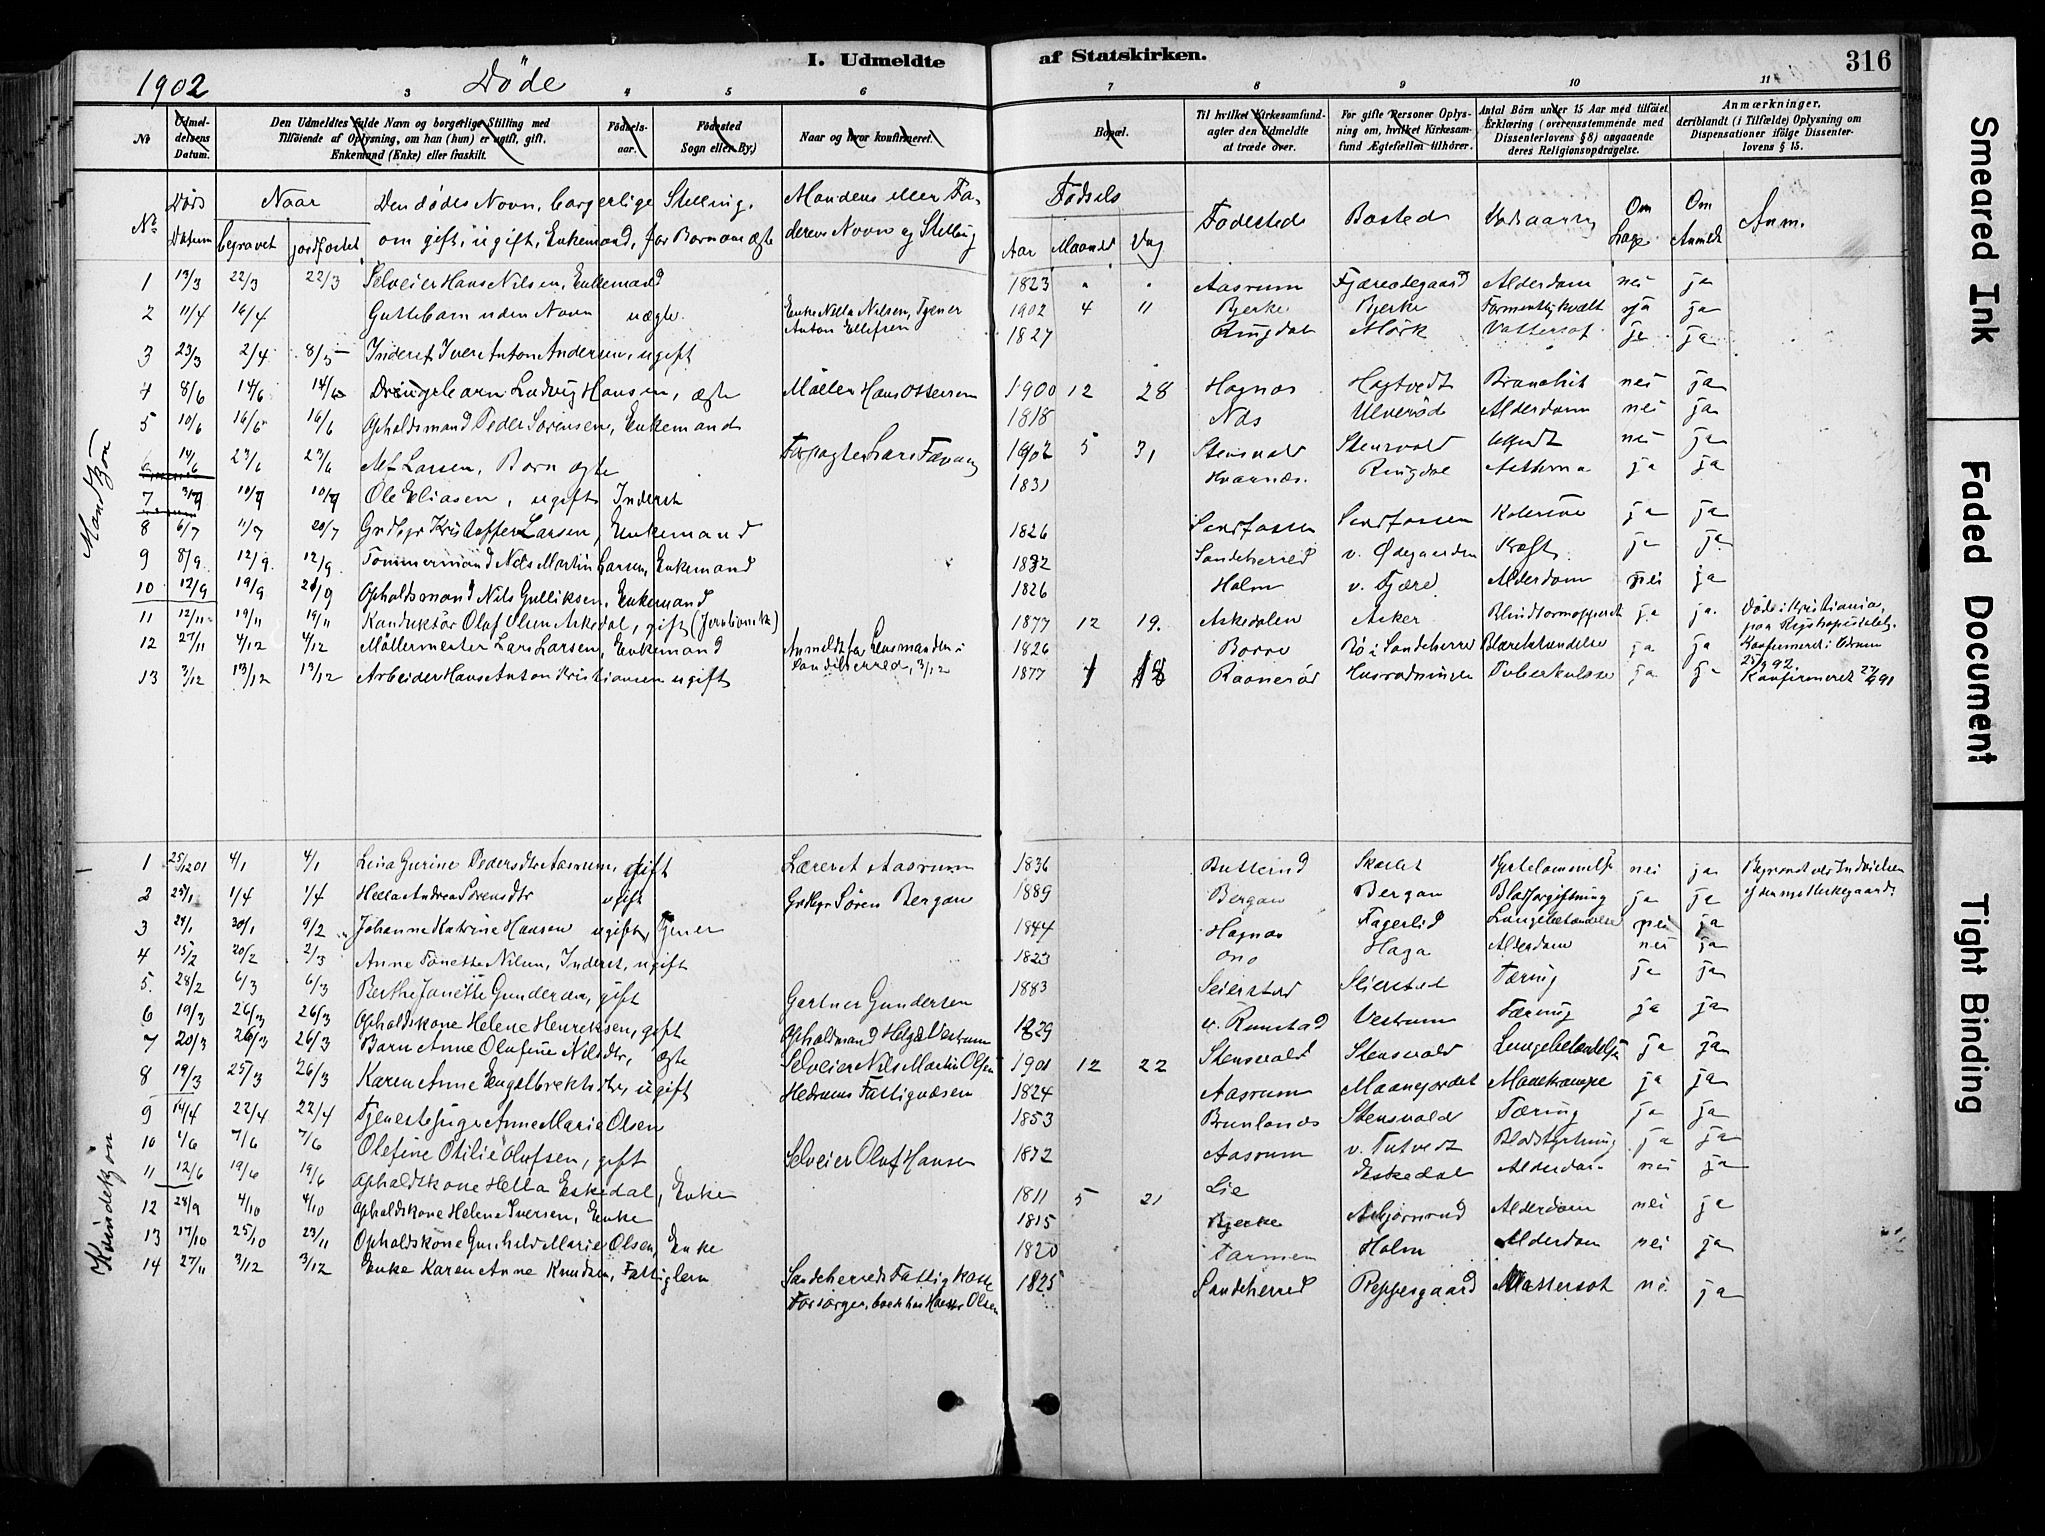 I. Udmeldte af Statskirken. 316
1902 Döde
3 4 5 6 7 8 9 10 11
№ Udmeldelsens Datum. Den Udmeldtes fulde Navn og borgerlige Stilling med Tilföiende af Oplysning, om han (hun) er ugift, gift, Enkemand (Enke) eller fraskilt. Födselsaar. Födested Sogn eller By.) Naar og hvor konfirmeret. Bopæl. Til hvilket Kirkesamfund agter den Udmeldte at træde over. For gifte Personer Oplysning om, hvilket Kirkesamfund Ægtefællen tilhörer. Antal Börn under 15 Aar med tilföiet Erklæring (overensstemmende med Dissenterlovens § 8) angaaende deres Religionsopdragelse. Anmærkninger, deriblandt (i Tilfælde) Oplysning om Dispensationer ifölge Dissenterlovens § 15.
No. Döds Datum Naar begravet jordfæstet Den dödes Navn, borgerlige Stilling, om gift, ugift, Enkemand, for Börn om ægte Mandens eller Faderens Navn og Stilling Födsels Aar Maaned Dag Födested Bosted Dödsaarsag Om Læge Om Anmeldt Anm.
Mandkjön
1 13/3 22/3 22/3 Selveier Hans Nilsen, Enkemand 1823 " " Aasrum Fjæreödegaard Alderdom nei ja
2 11/4 16/4 Guttebarn uden Navn uægte. Enke Nella Nilsen, Tjener Anton Ellefsen 1902 4 11 Bjerke Bjerke ja ja
3 23/3 2/4 8/5 Inderst Iver Anton Andersen, ugift 1827 Ringdal Mörk Vattersot ja ja
4 8/6 14/6 14/6 Drengebarn Ludvig Hansen, ægte Möller Hans Ottersen 1900 12 28 Hagnæs Hogtvedt Bronchit nei ja
5 10/6 16/6 16/6 Opholdsmand Peder Sörensen, Enkemand 1818 Næs Ulveröd Alderdom nei ja
6 14/6 23/6 23/6 Alf Larsen, Barn ægte Forpagter Lars Favang 1902 5 31 Stensvold Stensvold nei ja
7 3/7 10/7 10/7 Ole Eliasen, ugift Inderst 1831 Kvarnæs Ringdal Asthma ja ja
8 6/7 11/7 20/7 Grdbgr Kristoffer Larsen, Enkemand 1826 Sandfossen Sandfossen Kolerine ja ja
9 8/9 12/9 12/9 Tömmermand Nils Martin Larsen, Enkemand 1832 Sandeherred v. Ödegaarden Kræft ja ja
10 12/9 19/9 21/9 Opholdsmand Nils Gulliksen, Enkemand 1826 Holm v. Fjære Alderdom nei ja
11 12/11 19/11 19/11 Konduktör Olaf Olsen Askedal, gift 1877 12 19. Askedalen Asker ja ja. Döde i Kristiania, paa Rigshospitalet, Konfirmeret i 25/9 92.
12 27/11 4/12 4/12 Möllermester Lars Larsen, Enkemand Anmeldt for Lensmanden i Sandeherred, 3/12 1826 Borre Bö i Sandeherred ja ja
13 3/12 13/12 13/12 Arbeider Hans Anton Kristiansen ugift 1877 4 18 Raaneröd Tuberkulose ja ja Konfirmeret 91
Kvindekjön
1 25/12 01 4/1 4/1 Lina Gurine Pedersdtr Aasrum, gift Læreret Aasrum 1836 Butterud nei ja
2 25/1 1/4 1/4 Hella Andrea Sörensdtr ugift Grdbgr Sören Bergan 1889 Bergan Bergan Blodforgiftning ja ja
3 24/1 30/1 9/2 Johanne Katrine Hansen ugift, Tjener 1844 Hagnæs Fagerlid Lungebetændelse nei ja
4 15/2 20/2 2/3 Anne Tonette Nilsen, Inderst, ugift 1823 Ono Haga Alderdom nei ja
5. 28/2 6/3 6/3 Berthe Janette Gundersen, gift Gartner Gundersen 1883 Seierstad Seierstad Tæring ja ja
6 19/3 26/3 26/3 Opholdskone Helene Henriksen, gift Opholdsmand Helge Vestrum 1829 v. Rimstad Vestrum Tæring ja ja
7 20/3 26/3 26/3 Barn Anne Olufine Nilsdtr, ægte Selveier Nils Martin Olsen 1901 12 22 Stensvold Stensvold Lungebetændelse ja ja
8 19/3 25/3 26/3 Karen Anne Engelbrektsdtr, ugift Hedrums Fattigvæsen 1824 Aasrum Maanejordet Mavekrampe ja ja
9 14/4 22/4 22/4 Tjenestepige Anne Maria Olsen 1853 Brunlanæs Stensvold Tæring ja ja
10 1/6 7/6 7/6 Olefine Otilie Olufsen, gift Selveier Oluf Hansen 1872 Aasrum v. Tutvedt Blodstyrtning ja ja
11 12/6 19/6 19/6 Opholdskone Hella Eskedal, Enke 1811 5 21 Lie Eskedal Alderdom nei ja
12 28/9 4/10 4/10 Opholdskone Helene Iversen, Enke 1815 Bjerke Asbjörnrud Alderdom nei ja
13 17/10 25/10 23/11 Opholdskone Gunhild Marie Olsen, Enke 1820 Farmen Holm Alderdom nei ja
14 27/11 3/12 3/12 Enke Karen Anne Knudsen, Fattiglem Sandeherreds Fattigkasse Forsörger, 1825 Sandeherred Reppesgaard Vattersot nei ja
Smeared Ink
Faded Document
Tight Binding